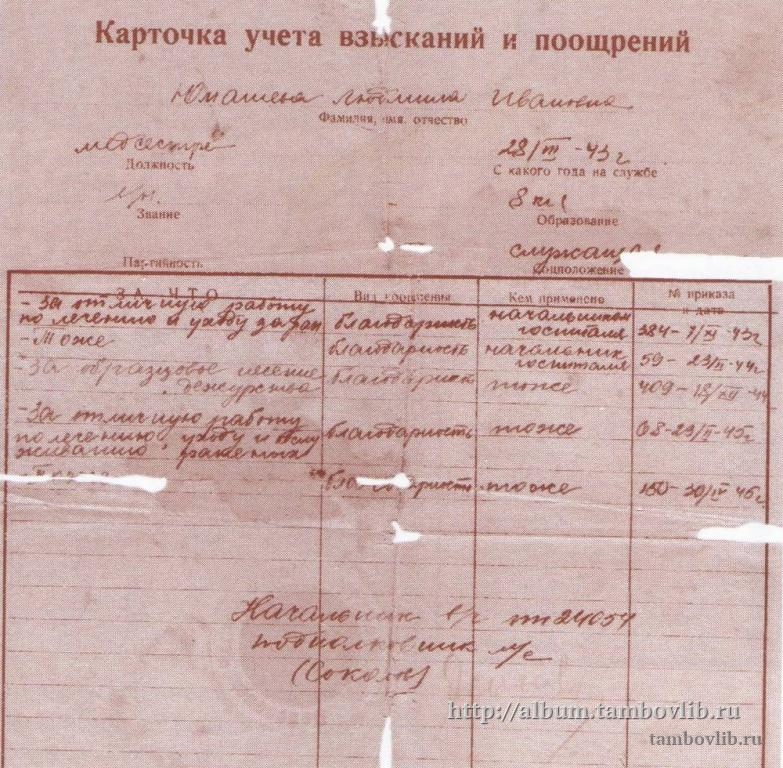 Карточка учета взысканий и поощрений
Юмашева Людмила Ивановна
Фамилия, имя, отчество
медсестра 28/III-43г
Должность С какого года на службе
8 кл
Звание Образование
служащая
Партийность Соцположение
ЗА ЧТО Вид поощрения Кем применено № приказа и дата
- За отличную работу по лечению и уходу за ран благодарность начальником госпиталя 284-7/XI-43г
- Тоже благодарность начальник госпиталя 59-23/II-44г
- За образцовое несение дежурства благодарность тоже 409-18/XII-44
- За отличную работу по лечению, уходу и обслуживанию раненых благодарность тоже 68-23/II-45г
благодарность тоже 150-30/IV-45г
Начальник в/ч пп 24054
подполковник м/с
http://album.tambovlib.ru
tambovlib.ru